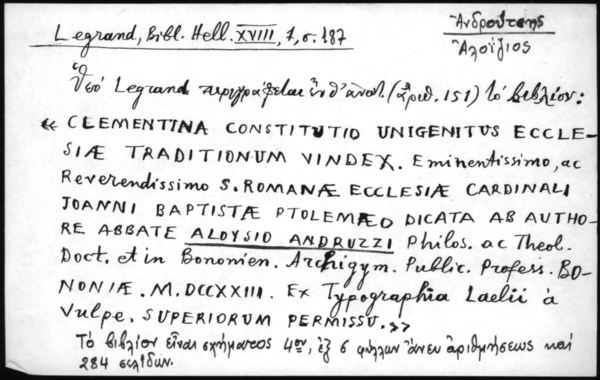 Legrand, Bibl. Hell. XVIII, 1, σ. 187
Ἀνδρούτσης
Ἀλοΐζιος
Ὑπό Legrand περιγράφεται ἐνθ' ἀνωτ. (ἀριθ. 151) τό βιβλίον:
« CLEMENTINA CONSTITUTIO UNIGENITUS ECCLE-
SIÆ TRADITIONUM VINDEX. Eminentissimo, ac
Reverendissimo S. ROMANÆ ECCLESIÆ CARDINALI
JOANNI BAPTISTÆ PTOLEMÆO DICATA AB AUTHO-
RE ABBATE ALOYSIO ANDRUZZI Philos. ac Theol.
Doct. et in Bononien. Archigym. Public. Profess. BO-
NONIÆ. M.DCCXXIII. Ex Typographia Laelii à
Vulpe. SUPERIORUM PERMISSU. »
Τό βιβλίον εἶναι σχήματος 4ον, ἐξ 6 φύλλων ἄνευ ἀριθμήσεως καί
284 σελίδων.